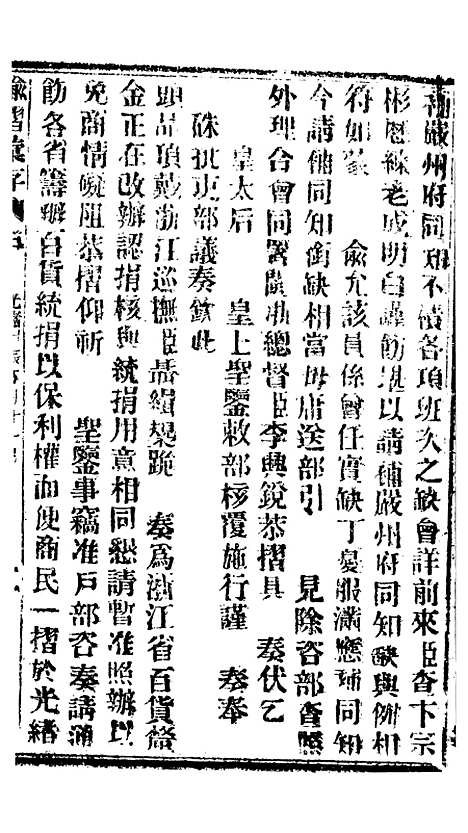 補嚴州府同知不積各項班次之缺會詳前來臣查卞宗
彬歷練老成明白謹飭堪以請補嚴州府同知缺與例相
符如蒙　俞允該員係曾任實缺丁憂服滿應補同知
今請補同知銜缺相當毋庸送部引　見除咨部查照
外理合會同署閩浙總督臣李興銳恭摺具　奏伏乞
皇太后　皇上聖鑒敕部核覆施行謹　奏奉
硃批吏部議奏欽此
頭品頂戴浙江巡撫臣聶緝椝跪　奏為浙江省百貨釐
金正在改辦認捐核與統捐用意相同懇請暫准照辦以
免商情礙阻恭摺仰祈　聖鑒事竊准戶部咨奏請通
飭各省籌辦百貨統捐以保利權而便商民一摺於光緒
諭摺彙存
光緒